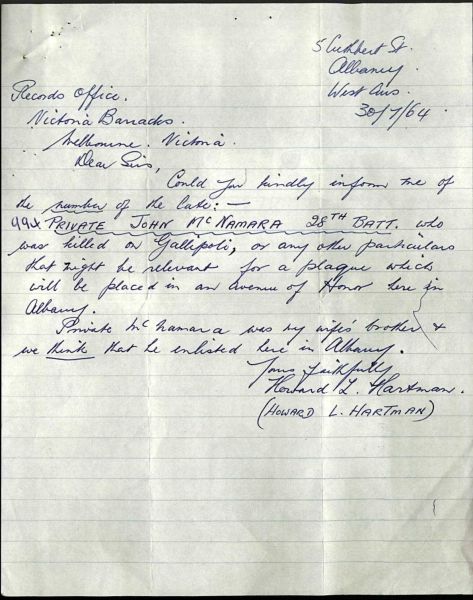 5 Cuthbert St.
Albany
West Aus.
30/7/64
Records Office.
Victoria Barracks.
Melbourne. Victoria.
Dear Sirs,
Could you kindly inform me of
the number of the late: —
994 PRIVATE JOHN McNAMARA 28TH BATT. who
was killed on Gallipoli, or any other particulars
that might be relevant for a plaque which
will be placed in an avenue of Honor here in
Albany.
Private McNamara was my wife's brother &
we think that he enlisted here in Albany.
Yours faithfully
Howard L. Hartman.
(HOWARD L. HARTMAN)